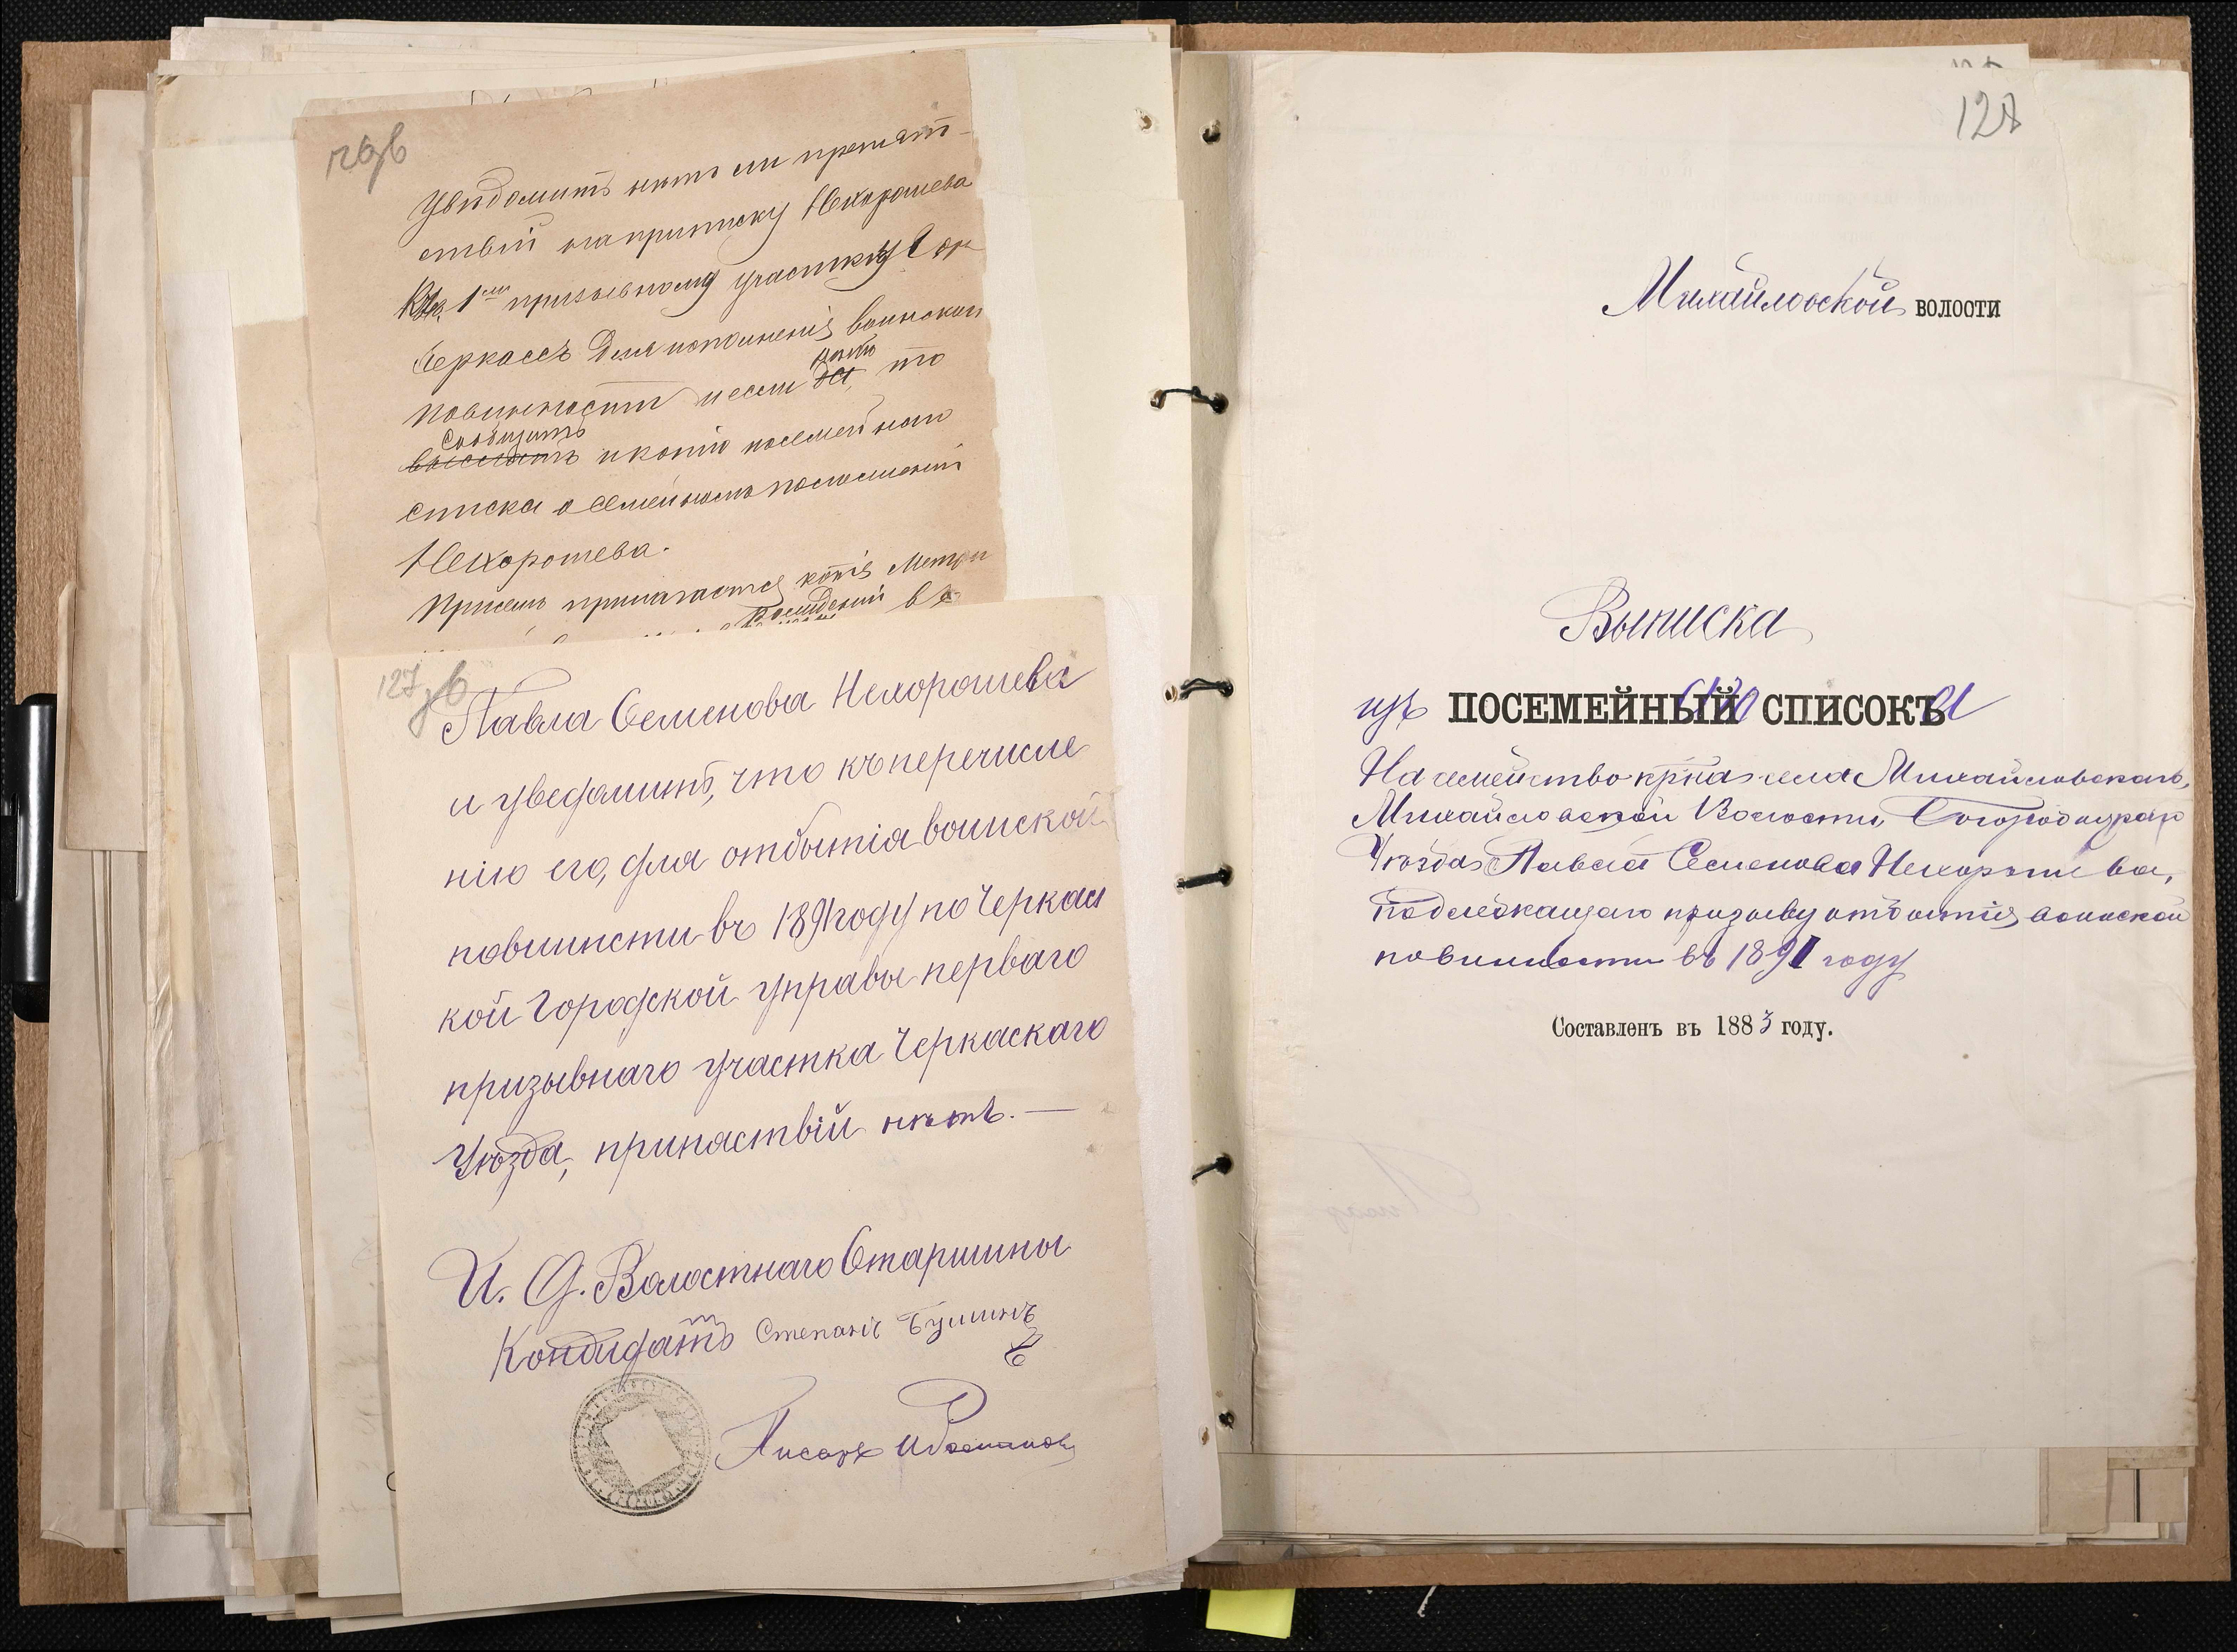 126об
Увѣдомить нѣтъ ли препят-
ствій на приписку Нехорошева
Къ 1му призывному участку Гор
Черкассъ для исполненія воинской
копію
повинности и если да, то
Сообщить
выслать и копію посемейнаго
списка о семейномъ положеніи
Нехорошева.
При семъ прилагается копія Метри
127об
Павла Семенова Нехорошева
и уведомит, что къ перечисле
нію его, для отбытія воинской
повинности въ 1891 году по Черкас
кой Городской управы перваго
призывнаго участка Черкаскаго
Уѣзда, припяствій нѣтъ. —
И. Д. Волостнаго Старшины
Кондидатъ Степанъ Бушинъ
Писарь
128
Михайловской ВОЛОСТИ
Выписка
изъ ПОСЕМЕЙНЫЙаго СПИСОКЪа
На семейство кр-на села Михайловскаго,
Михайловской Волости, Богородицкаго
Уѣзда Павла Семенова Нехорошева,
подлежащаго призыву отбытія воинской
повинности въ 1891 году
Составленъ въ 1883 году.